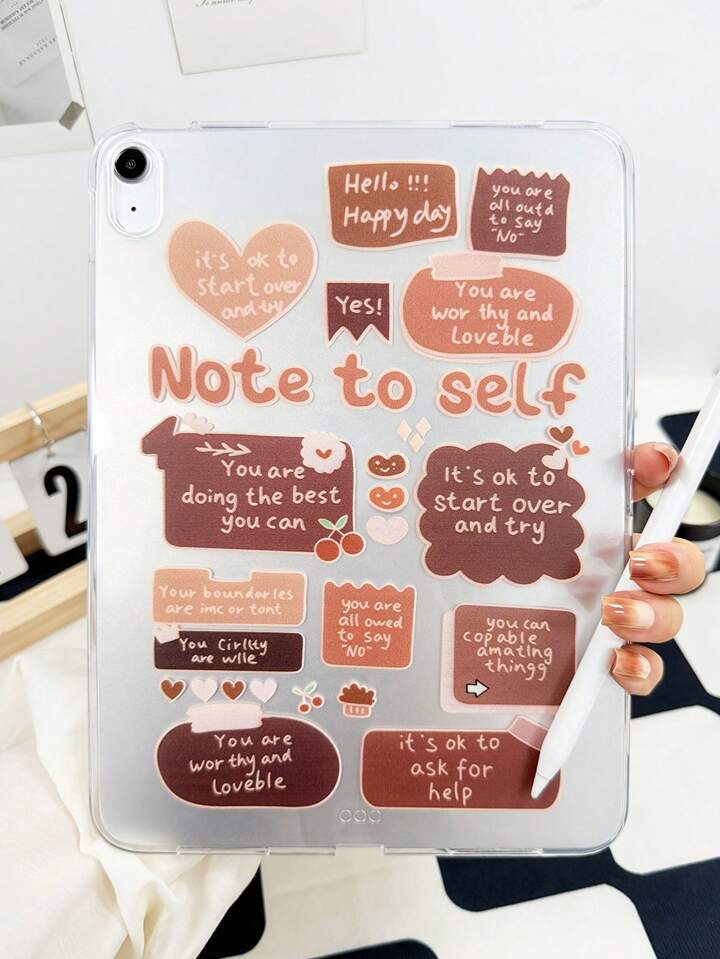 Hello !!!
Happy day
you are
all outd
to say
"No"
it's ok to
start over
and try
Yes!
You are
wor thy and
Loveble
Note to self
You are
doing the best
you can
It's ok to
start over
and try
Your boundarles
are imc or tont
you are
all owed
to say
"NO"
you can
cop able
amatlng
thingg
You Cirllty
are wlle
You are
wor thy and
Loveble
it's ok to
ask for
help
2